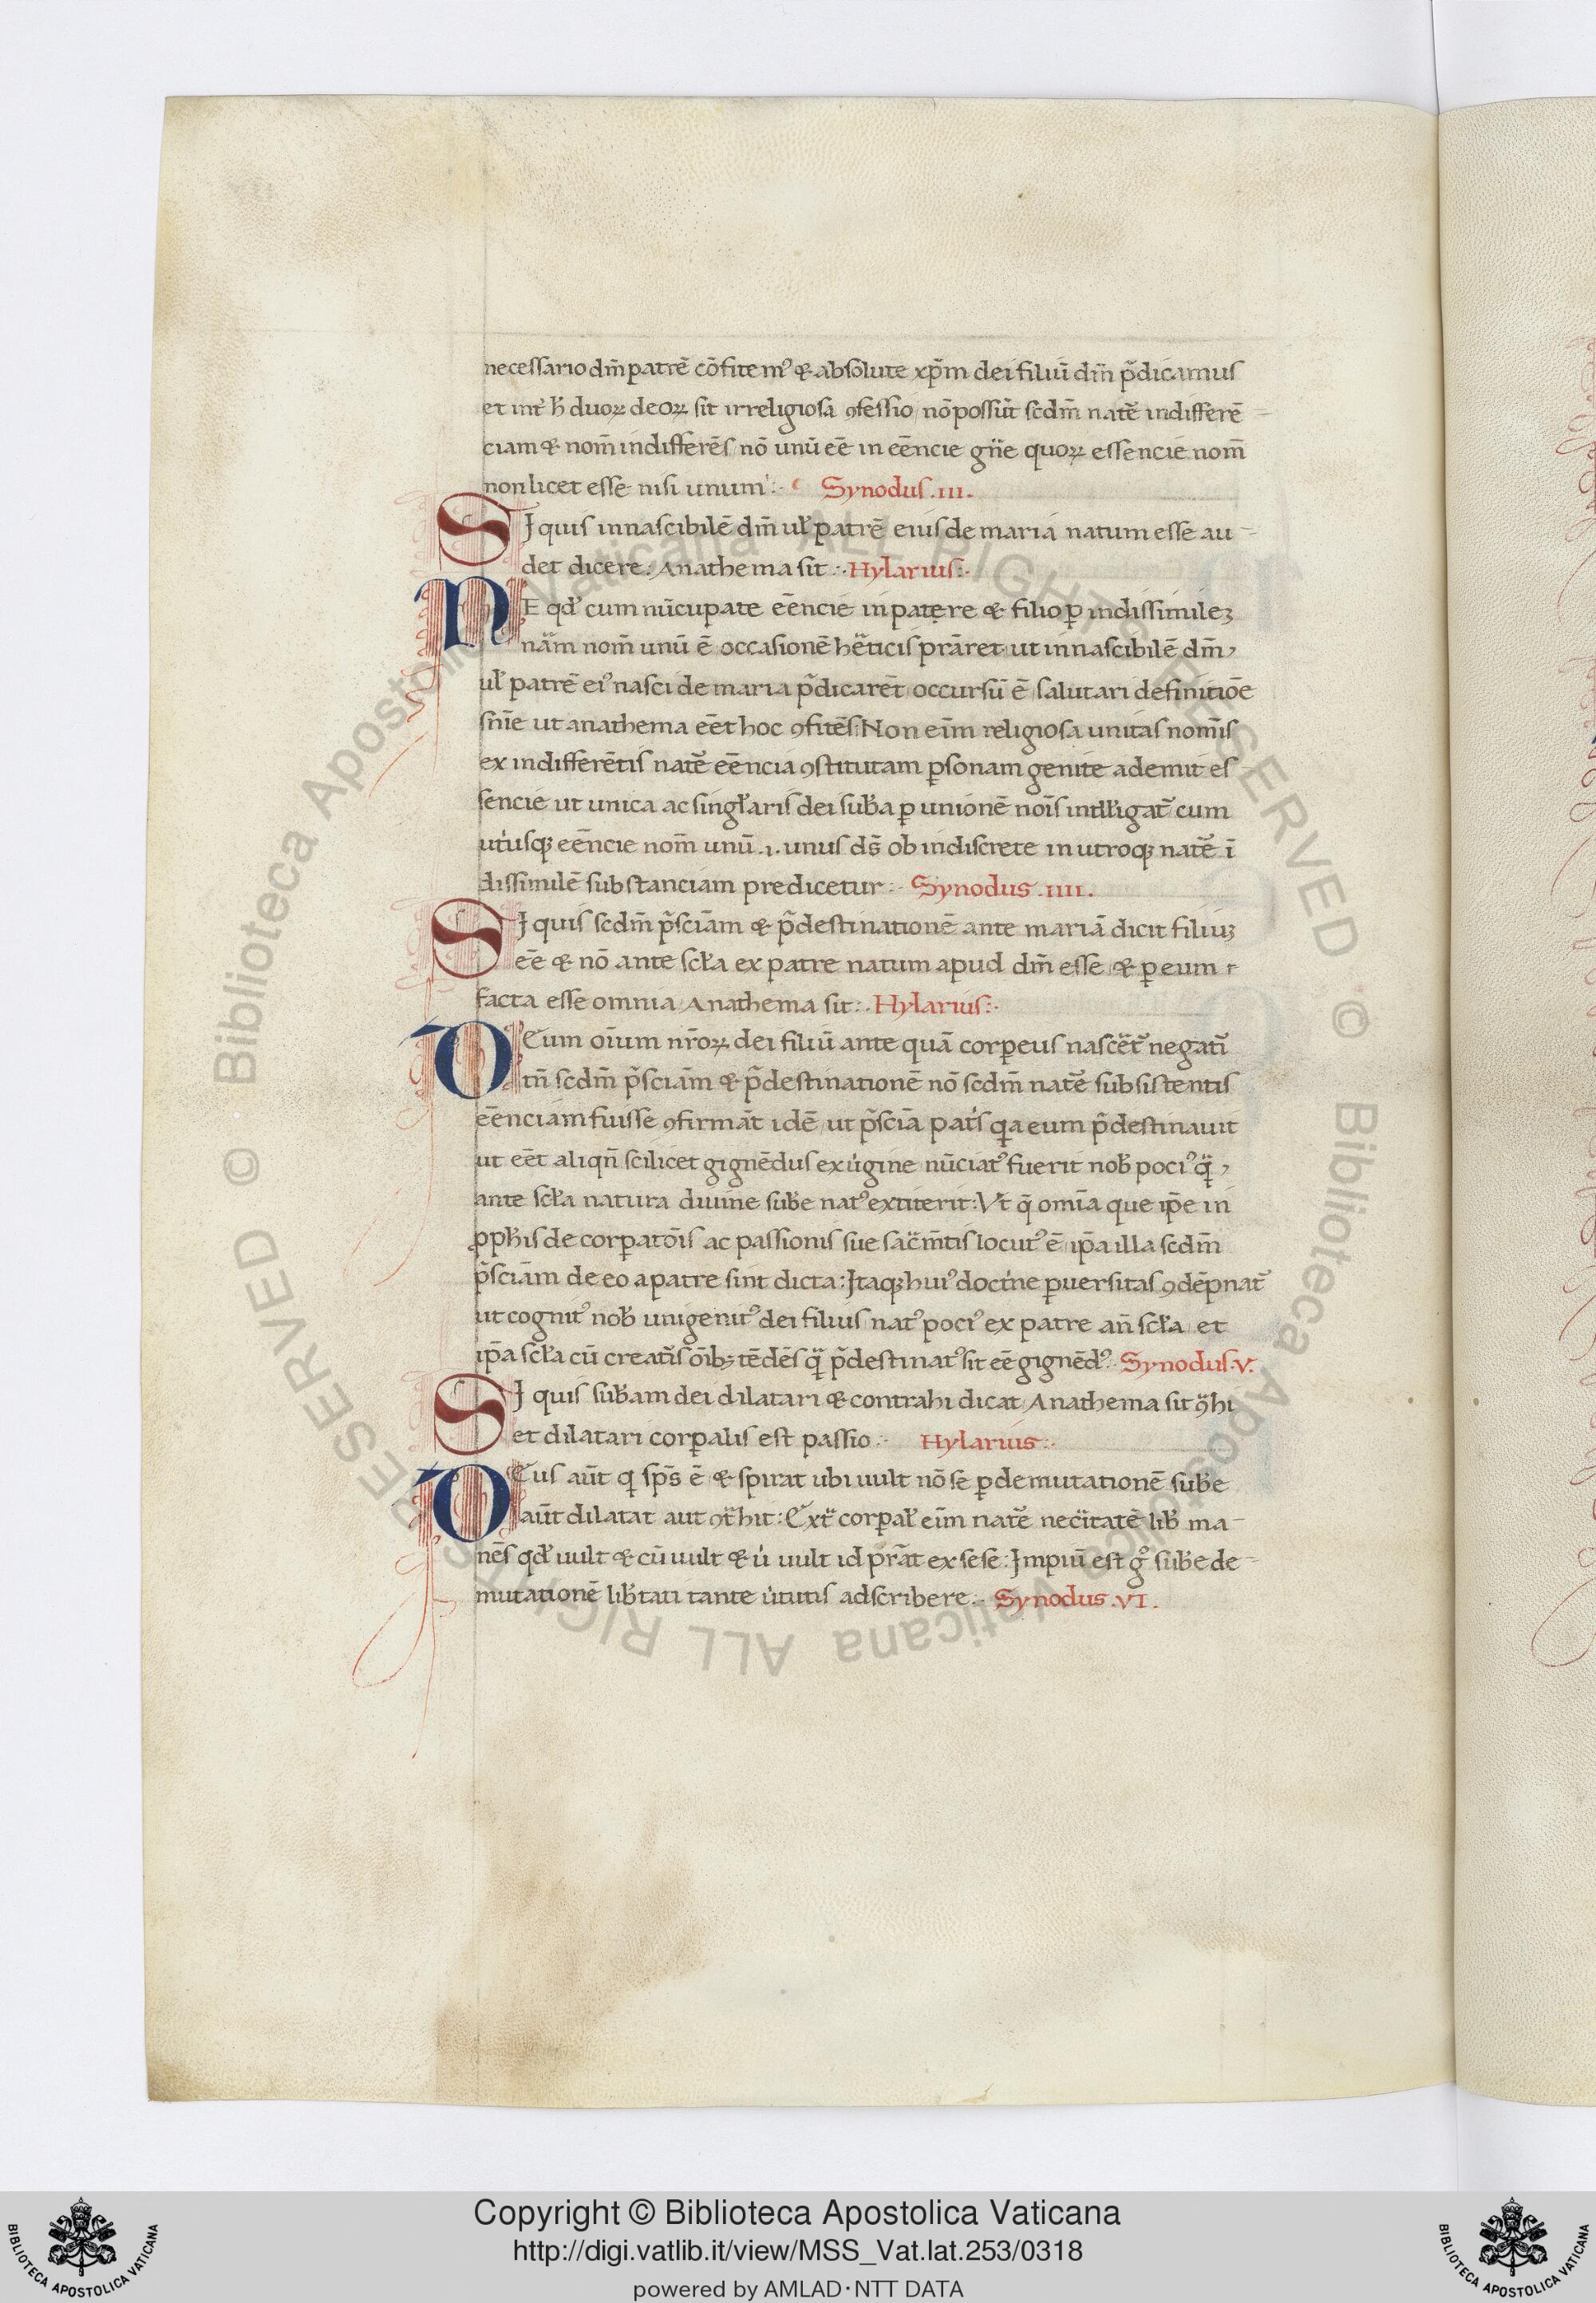 necessario dm̄ patrē cōfitemꝰ & absolute xp̄m dei filiū dm̄ p̄dicamus
et int̕ h̕ duoꝝ deoꝝ sit irreligiosa ꝯfessio nō possūt scdm̄ nat̄e indifferē
ciam & nom̄ indifferēs nō unū eē in eēncie gn̄e quoꝝ essencie nom̄
non licet esse nisi unum Synodus .III.
SJ quis innascibilē dm̄ ul̕ patrē eius de maria natum esse au-
det dicere. Anathema sit Hylarius
NE qd̕ cum nūcupate eēncie in patere & filio ꝑ indissimileꝫ
nām nom̄ unū ē occasionē hēticis prāret ut innascibilē dm̄
ul̕ patrē eiꝰ nasci de maria p̄dicarēt occursū ē salutari definitiōe
sn̄ie ut anathema eēt hoc ꝯfitēs. Non eīm religiosa unitas nomīs
ex indifferētis nat̄e eēncia ꝯstitutam ꝑsonam genite ademit es
sencie ut unica ac singl̕aris dei sub̕a ꝑ unionē noīs intll̕igat̄ cum
ut̕usqꝫ eēncie nom̄ unū .i. unus ds̄ ob indiscrete in utroqꝫ nat̄e ī
dissimilē substanciam predicetur Synodus .IIII.
SJ quis scdm̄ p̄sciām & p̄destinationē ante mariā dicit filiuꝫ
eē & nō ante scl̕a ex patre natum apud dm̄ esse & ꝑ eum
facta esse omnia Anathema sit Hylarius
DEum oīum nr̄oꝝ dei filiū ante quā corꝑeus nascēt̄ negat̄
tn̄ scdm̄ p̄sciām & p̄destinationē nō scdm̄ nat̄e subsistentis
eēnciam fuisse ꝯfirmāt idē ut p̄sciā pat̕s qꝛa eum p̄destinavit
ut eēt aliqn̄ scilicet gignēdus ex u̕gine nūciatꝰ fuerit nob̕ pociꝰ q̄
ante scl̕a natura divine sub̕e natꝰ extiterit: Vt q̄ omīa que ip̄e in
ꝓph̕is de corꝑatōis ac passionis sue sac̄m̄tis locutꝰ ē ip̄a illa scdm̄
p̄sciām de eo a patre sint dicta: Jtaqꝫ huiꝰ doct̕ne ꝑversitas ꝯdēpnat̄
ut cognitꝰ nob̕ unigenitꝰ dei filius natꝰ pociꝰ ex patre an̄ scl̕a et
ip̄a scl̕a cū creat̄is oībꝫ tēdēs q̄ p̄destinatꝰ sit eē gignēdꝰ. Synodus .V.
SJ quis sub̕am dei dilatari & contrahi dicat Anathema sit ꝯ̄hi
et dilatari corꝑalis est passio Hylarius
DEus aūt q̕ sp̄s ē & spirat ubi vult nō se ꝑ demutationē sub̕e
aūt dilatat aut ꝯt̄hit: Ext̄ corꝑal̕ eīm nat̄e nec̄itatē lib̕ ma-
nēs qd̕ vult & cū vult & u̕ vult id prāt ex sese: Jmpiū est gͦ sub̕e de-
mutationē lib̕tati tante u̕tutis adscribere Synodus .VI.
© Biblioteca Apostolica Vaticana ALL RIGHTS RESERVED
© Biblioteca Apostolica Vaticana ALL RIGHTS RESERVED
Copyright © Biblioteca Apostolica Vaticana
http://digi.vatlib.it/view/MSS_Vat.lat.253/0318
powered by AMLAD·NTT DATA
BIBLIOTECA APOSTOLICA VATICANA
BIBLIOTECA APOSTOLICA VATICANA